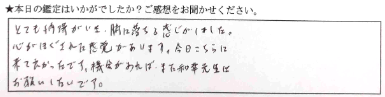 ★本日の鑑定はいかがでしたか？ご感想をお聞かせください。
とても納得がいき、腑に落ちる感じがしました。
心がほぐされた感覚があります。今日こちらに
来てよかったです。機会があれば、また和幸先生に
お願いしたいです。